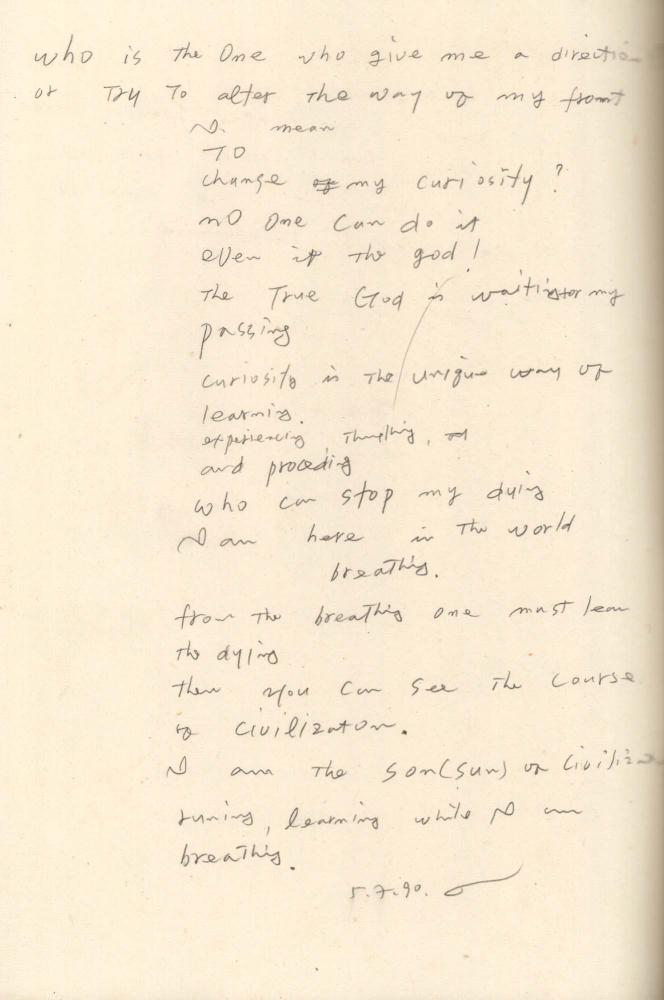 who is the One who give me a direction
or Try To alter The way of my front
I mean
TO
change my curiosity?
no One Can do it
even if the god!
The True God is waiting for my
passing
curiosity is The unique way of
learning.
experiencing, Thinking,
and proceding
who can stop my dying
I am here in The world
breathing.
from The breathing one must lean
The dying
then you can see The course
of civilizaton.
I am The son(sun) of Civiliza
runing, learning while I am
breathing.
5.7.90.